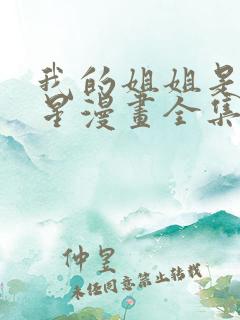 我的姐姐是
星漫畫全集
仲星
未任同意禁止转载